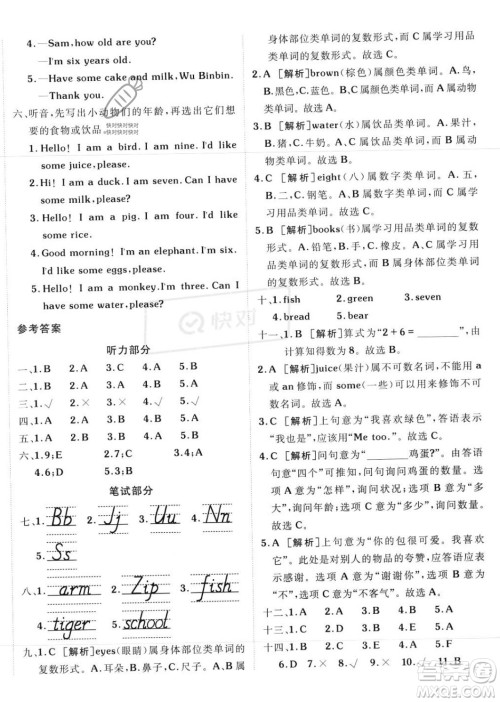 4.—Sam, how old are you?
—I'm six years old.
5.—Have some cake and milk, Wu Binbin.
—Thank you.
六、听音,先写出小动物们的年龄,再选出它们想
要的食物或饮品。
1. Hello! I am a bird. I am nine. I'd like
some juice, please.
2. Hello! I am a duck. I am seven. I'd like some
milk, please.
3. Hello! I am a pig. I am four. I'd like
some rice.
4. Good morning! I'm an elephant. I'm six.
I'd like some eggs, please.
5. Hello! I am a monkey. I'm three. Can I
have some water, please?
参考答案
听力部分
一、1. B 2. A 3. C 4. A 5. B
二、1. C 2. A 3. A 4. B 5. B
三、1. √ 2. × 3. √ 4. × 5. √
四、1. A 2. B 3. B 4. C 5. A
五、1. C 2. A 3. B 4. B 5. A
六、1. 9;E 2. 7;C 3. 4;B
4. 6;D 5. 3;A
笔试部分
七、1. Bb 2. Jj 3. Uu 4. Nn
5. Ss
八、1. arm 2. Zip 3. fish
4. tiger 5. school
九、1. C [解析]eyes(眼睛)属身体部位类单词的
复数形式。A. 耳朵,B. 鼻子,C. 尺子。A、B 属
身体部位类单词的复数形式。而 C 属学习用品
类单词的复数形式。故选 C。
2. A [解析]brown(棕色)属颜色类单词。A. 鸟,
B. 黑色,C. 红色。B、C 属颜色类单词。而 A 属动
物类单词。故选 A。
3. B [解析]water(水)属饮品类单词。A. 果汁,
B. 猪,C. 牛奶。A、C 属饮品类单词。而 B 属动
物类单词。故选 B。
4. C [解析]eight(八)属数字类单词。A. 五,
B. 二,C. 钢笔。A、B 属数字类单词。而 C 属学
习用品类单词。故选 C。
5. B [解析]books(书)属学习用品类单词的复数
形式。A. 铅笔,B. 手,C. 橡皮。A、C 属学习用
品类单词的复数形式,而 B 属身体部位类单词
的复数形式。故选 B。
十、1. fish 2. green 3. seven
4. bread 5. bear
十一、1. B [解析]算式为“2+6=______”,
计算得出得数为 8。故选 B。
2. A [解析]juice(果汁)属不可数名词,不能用 a
或 an 修饰,而 some(一些)可以用来修饰不可数
名词。故选 A。
3. C [解析]上句意为“我喜欢绿色”,答语表示
“我也是”,应该用“Me too.”。故选 C。
4. C [解析]问句意为“______鸡蛋?”。由答
语句意“四个”可知,问句询问鸡蛋的数量。A 意
为“怎么样”,询问状况;B 意为“多大”,询问年
龄;C 意为“多少”,询问数量。故选 C。
5. A [解析]上句意为“你的包很可爱。我喜欢
它”。此处是对别人的物品的夸赞,应答语应表
示感谢。选项 A 意为“谢谢你”,选项 B 意为“不,
谢谢”,选项 C 意为“不客气”。故选 A。
十二、1. C 2. A 3. B 4. B 5. C
十三、1. D 2. A 3. E 4. C 5. B
十四、1. B 2. A 3. C 4. E
6. D 7. × 8. × 9. √ 10. √ 11. B
快对
快对快对快对
快对快对快对
答案圈
MXQE.COM